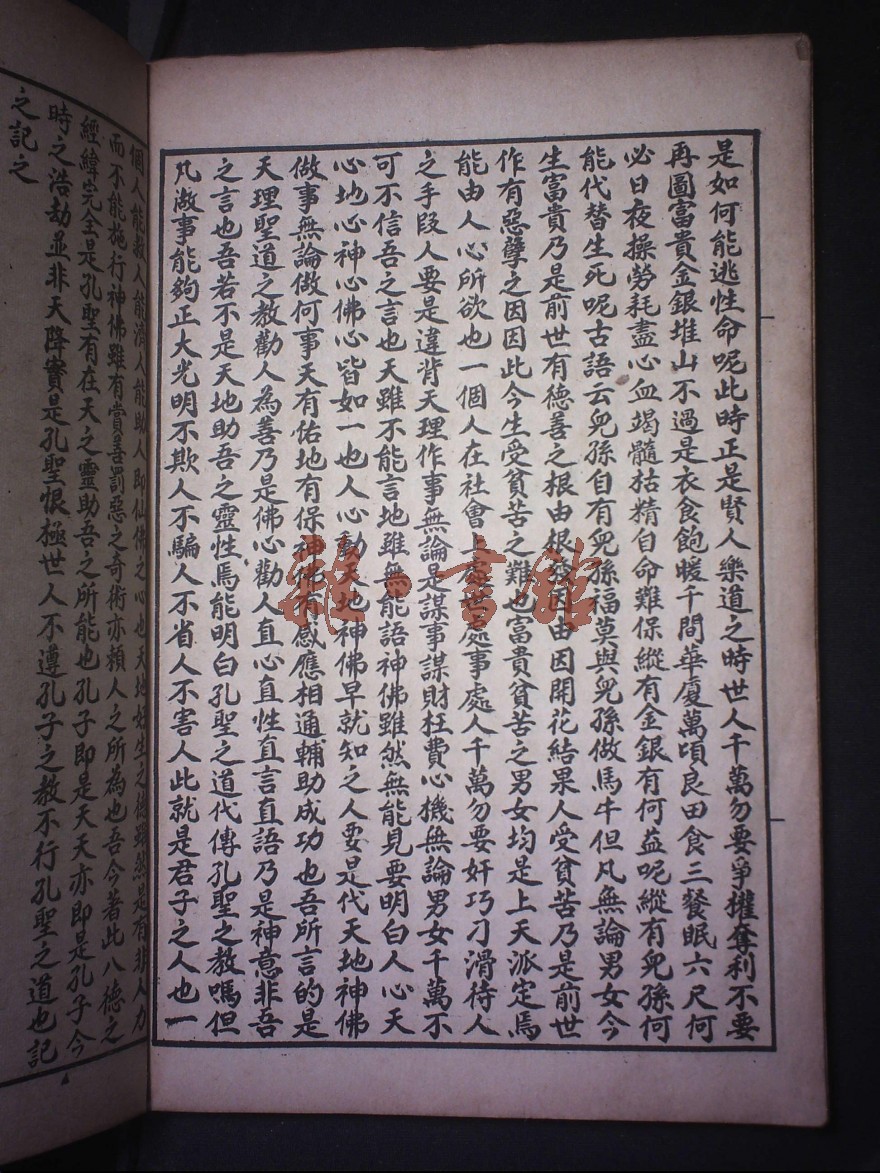 是如何能逃性命呢此時正是賢人樂道之時世人千萬勿要爭權奪利不要
再圖富貴金銀堆山不過是衣食飽暖千間華廈萬頃良田食三餐眠六尺何
必日夜操勞耗盡心血竭髓枯精自命難保縱有金銀有何益呢縱有兒孫何
能代替生死呢古語云兒孫自有兒孫福莫與兒孫做馬牛但凡無論男女今
生富貴乃是前世有德善之根由根發因由因開花結果人受貧苦乃是前世
作有惡孽之因因此今生受貧苦之難也富貴貧苦之男女均是上天派定焉
能由人心所欲也一個人在社會上處世處事處人千萬勿要奸巧刁滑待人
之手段人要是違背天理作事無論是謀事謀財枉費心機無論男女千萬不
可不信吾之言也天雖不能言地雖無能語神佛雖然無能見要明白人心天
心地心神心佛心皆如一也人心動天地神佛早就知之人要是代天地神佛
做事無論做何事天有佑地有保神佛有感應相通輔助成功也吾所言的是
天理聖道之教勸人為善乃是佛心勸人直心直性直言直語乃是神意非吾
之言也吾若不是天地助吾之靈性焉能明白孔聖之道代傳孔聖之教嗎但
凡做事能夠正大光明不欺人不騙人不省人不害人此就是君子之人也一
個人能救人能濟人能助人即仙佛之心也天地好生之德雖然是有非人力
而不能施行神佛雖有賞善罰惡之奇術亦賴人之所為也吾今著此八德之
經緯完全是孔聖有在天之靈助吾之所能也孔子即是天天亦即是孔子今
時之浩劫並非天降實是孔聖恨極世人不遵孔子之教不行孔聖之道也記
之記之
雅·書館